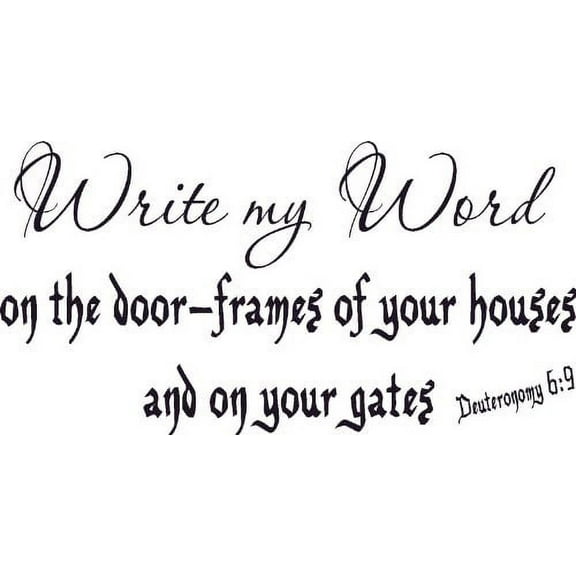 Write my Word
on the door-frames of your houses
and on your gates Deuteronomy 6:9